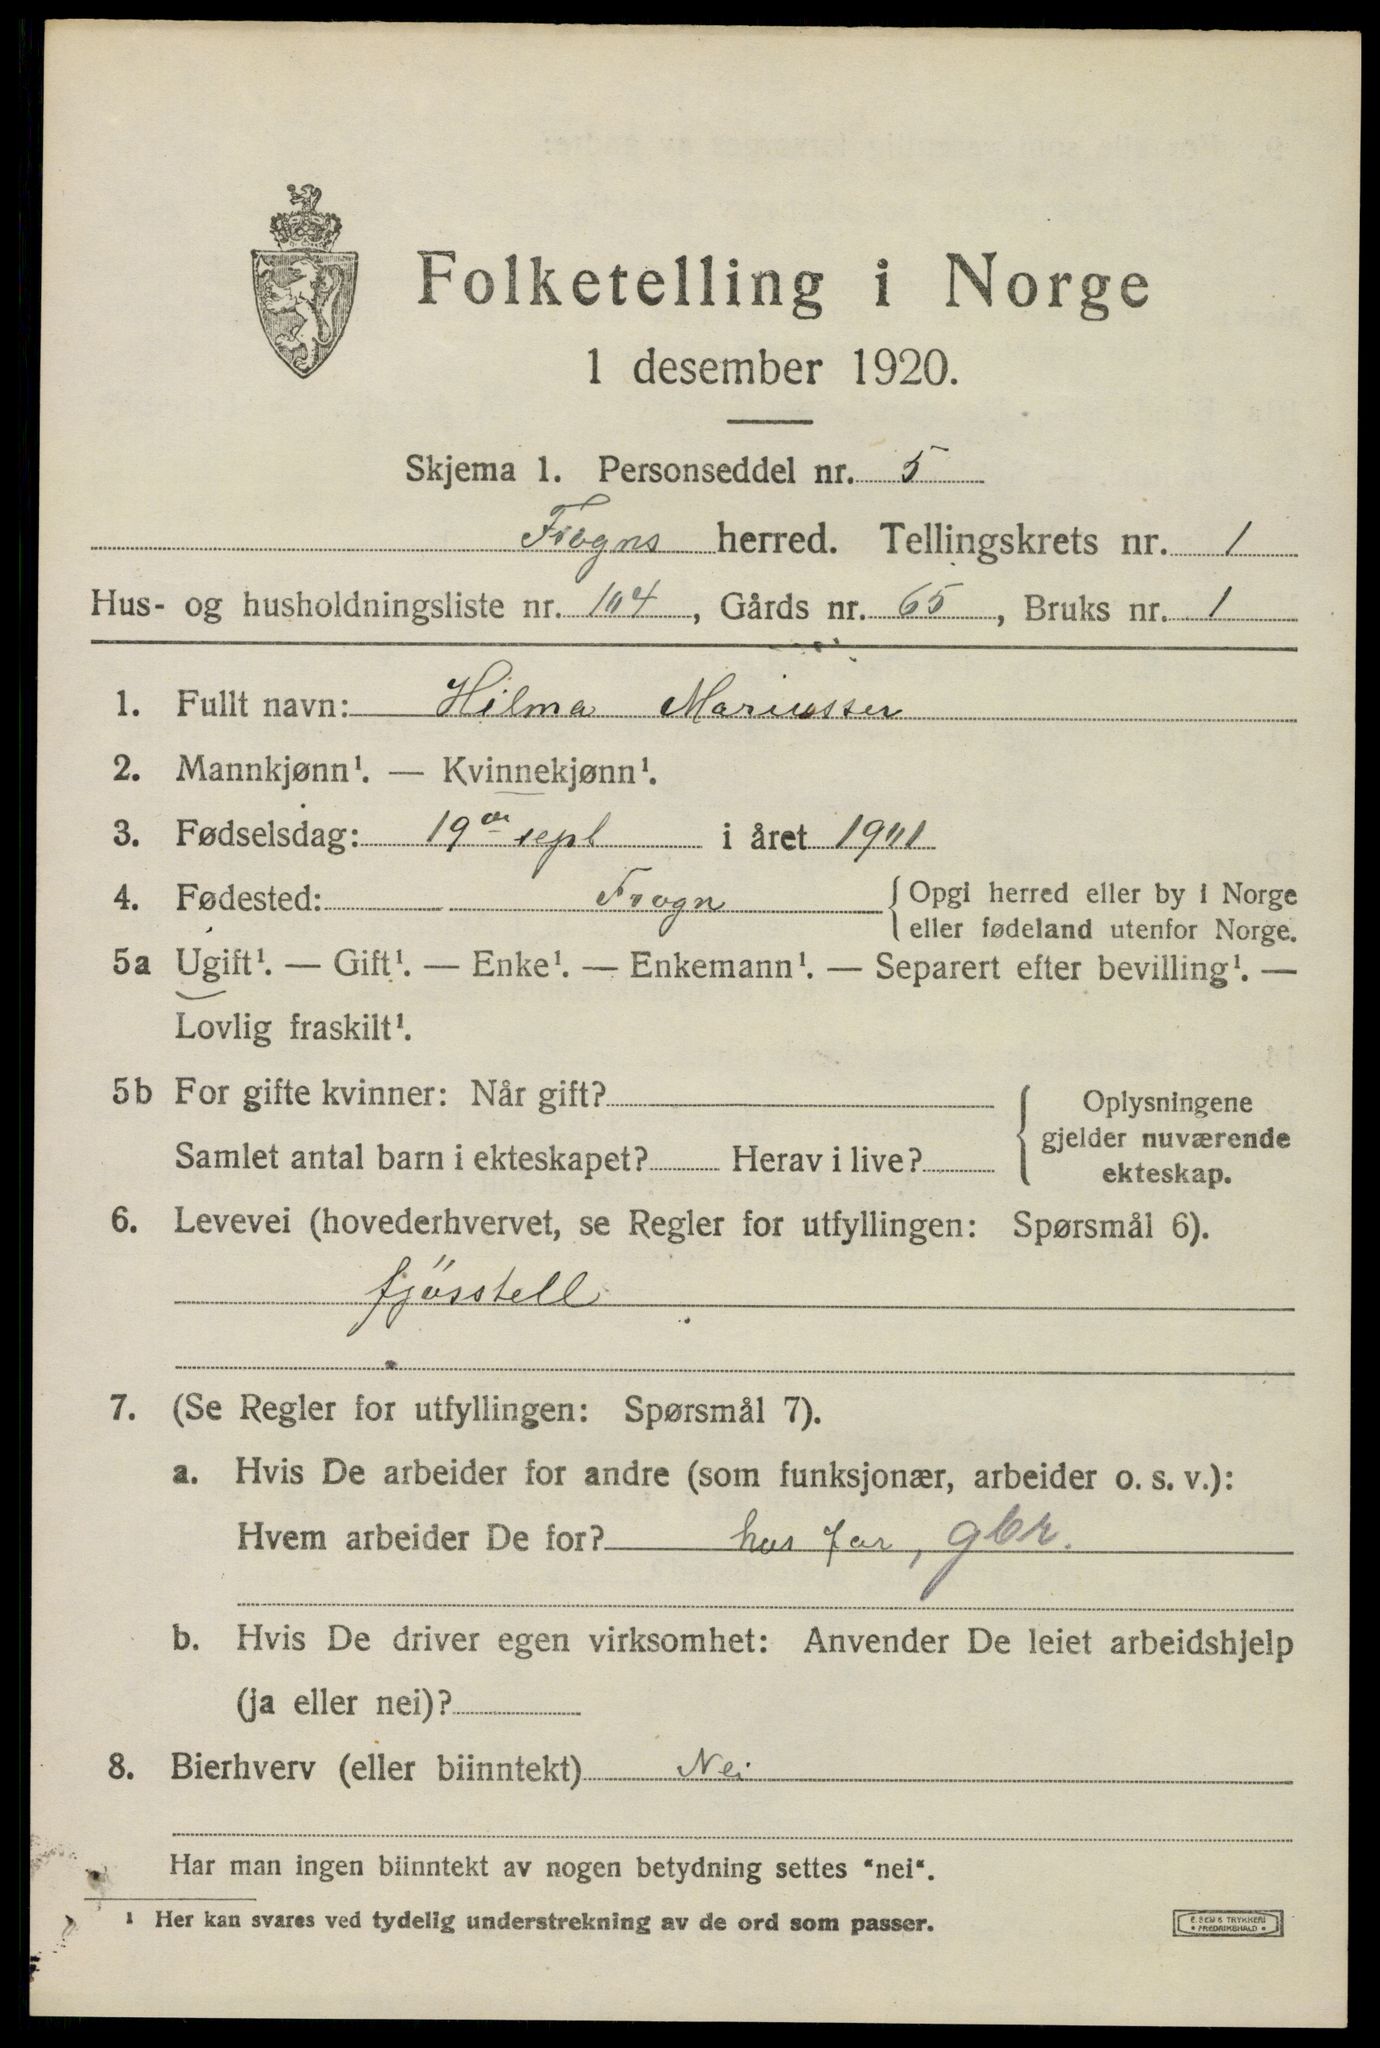 Folketelling i Norge
1 desember 1920.
Skjema 1. Personseddel nr. 5
Frogns herred. Tellingskrets nr. 1
Hus- og husholdningsliste nr. 104, Gårds nr. 65, Bruks nr. 1
1. Fullt navn: Hilma Mariussen
2. Mannkjønn¹. — Kvinnekjønn¹.
3. Fødselsdag: 19de sept i året 1901
4. Fødested: Frogn {Opgi herred eller by i Norge
eller fødeland utenfor Norge.
5a Ugift¹. — Gift¹. — Enke¹. — Enkemann¹. — Separert efter bevilling¹. —
Lovlig fraskilt¹.
5b For gifte kvinner: Når gift?
Samlet antal barn i ekteskapet? Herav i live?
Oplysningene
gjelder nuværende
ekteskap.
6. Levevei (hovederhvervet, se Regler for utfyllingen: Spørsmål 6).
fjösstell
7. (Se Regler for utfyllingen: Spørsmål 7).
a. Hvis De arbeider for andre (som funksjonær, arbeider o. s. v.):
Hvem arbeider De for? hos far, gbr.
b. Hvis De driver egen virksomhet: Anvender De leiet arbeidshjelp
(ja eller nei)?
8. Bierhverv (eller biinntekt) Nei
Har man ingen biinntekt av nogen betydning settes "nei".
¹ Her kan svares ved tydelig understrekning av de ord som passer.
E. SEMS TRYKKERI
FREDRIKSHALD